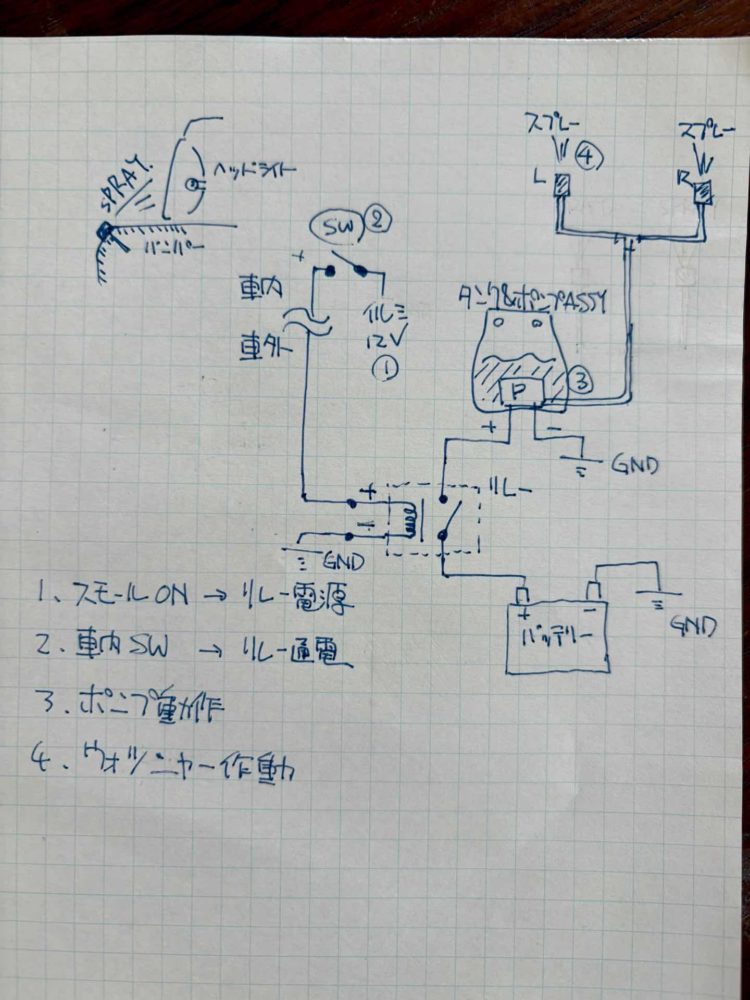 スプレー
スプレー
SPRAY.
ヘッドライト
バンパー
L
④
R
SW ②
+
車内
車外
イルミ
12V
①
タンク&ポンプASSY
P
③
+
-
GND
リレー
+
-
GND
+
-
バッテリー
GND
1. スモールON → リレー電源
2. 車内SW → リレー通電
3. ポンプ動作
4. ウォッシャー作動